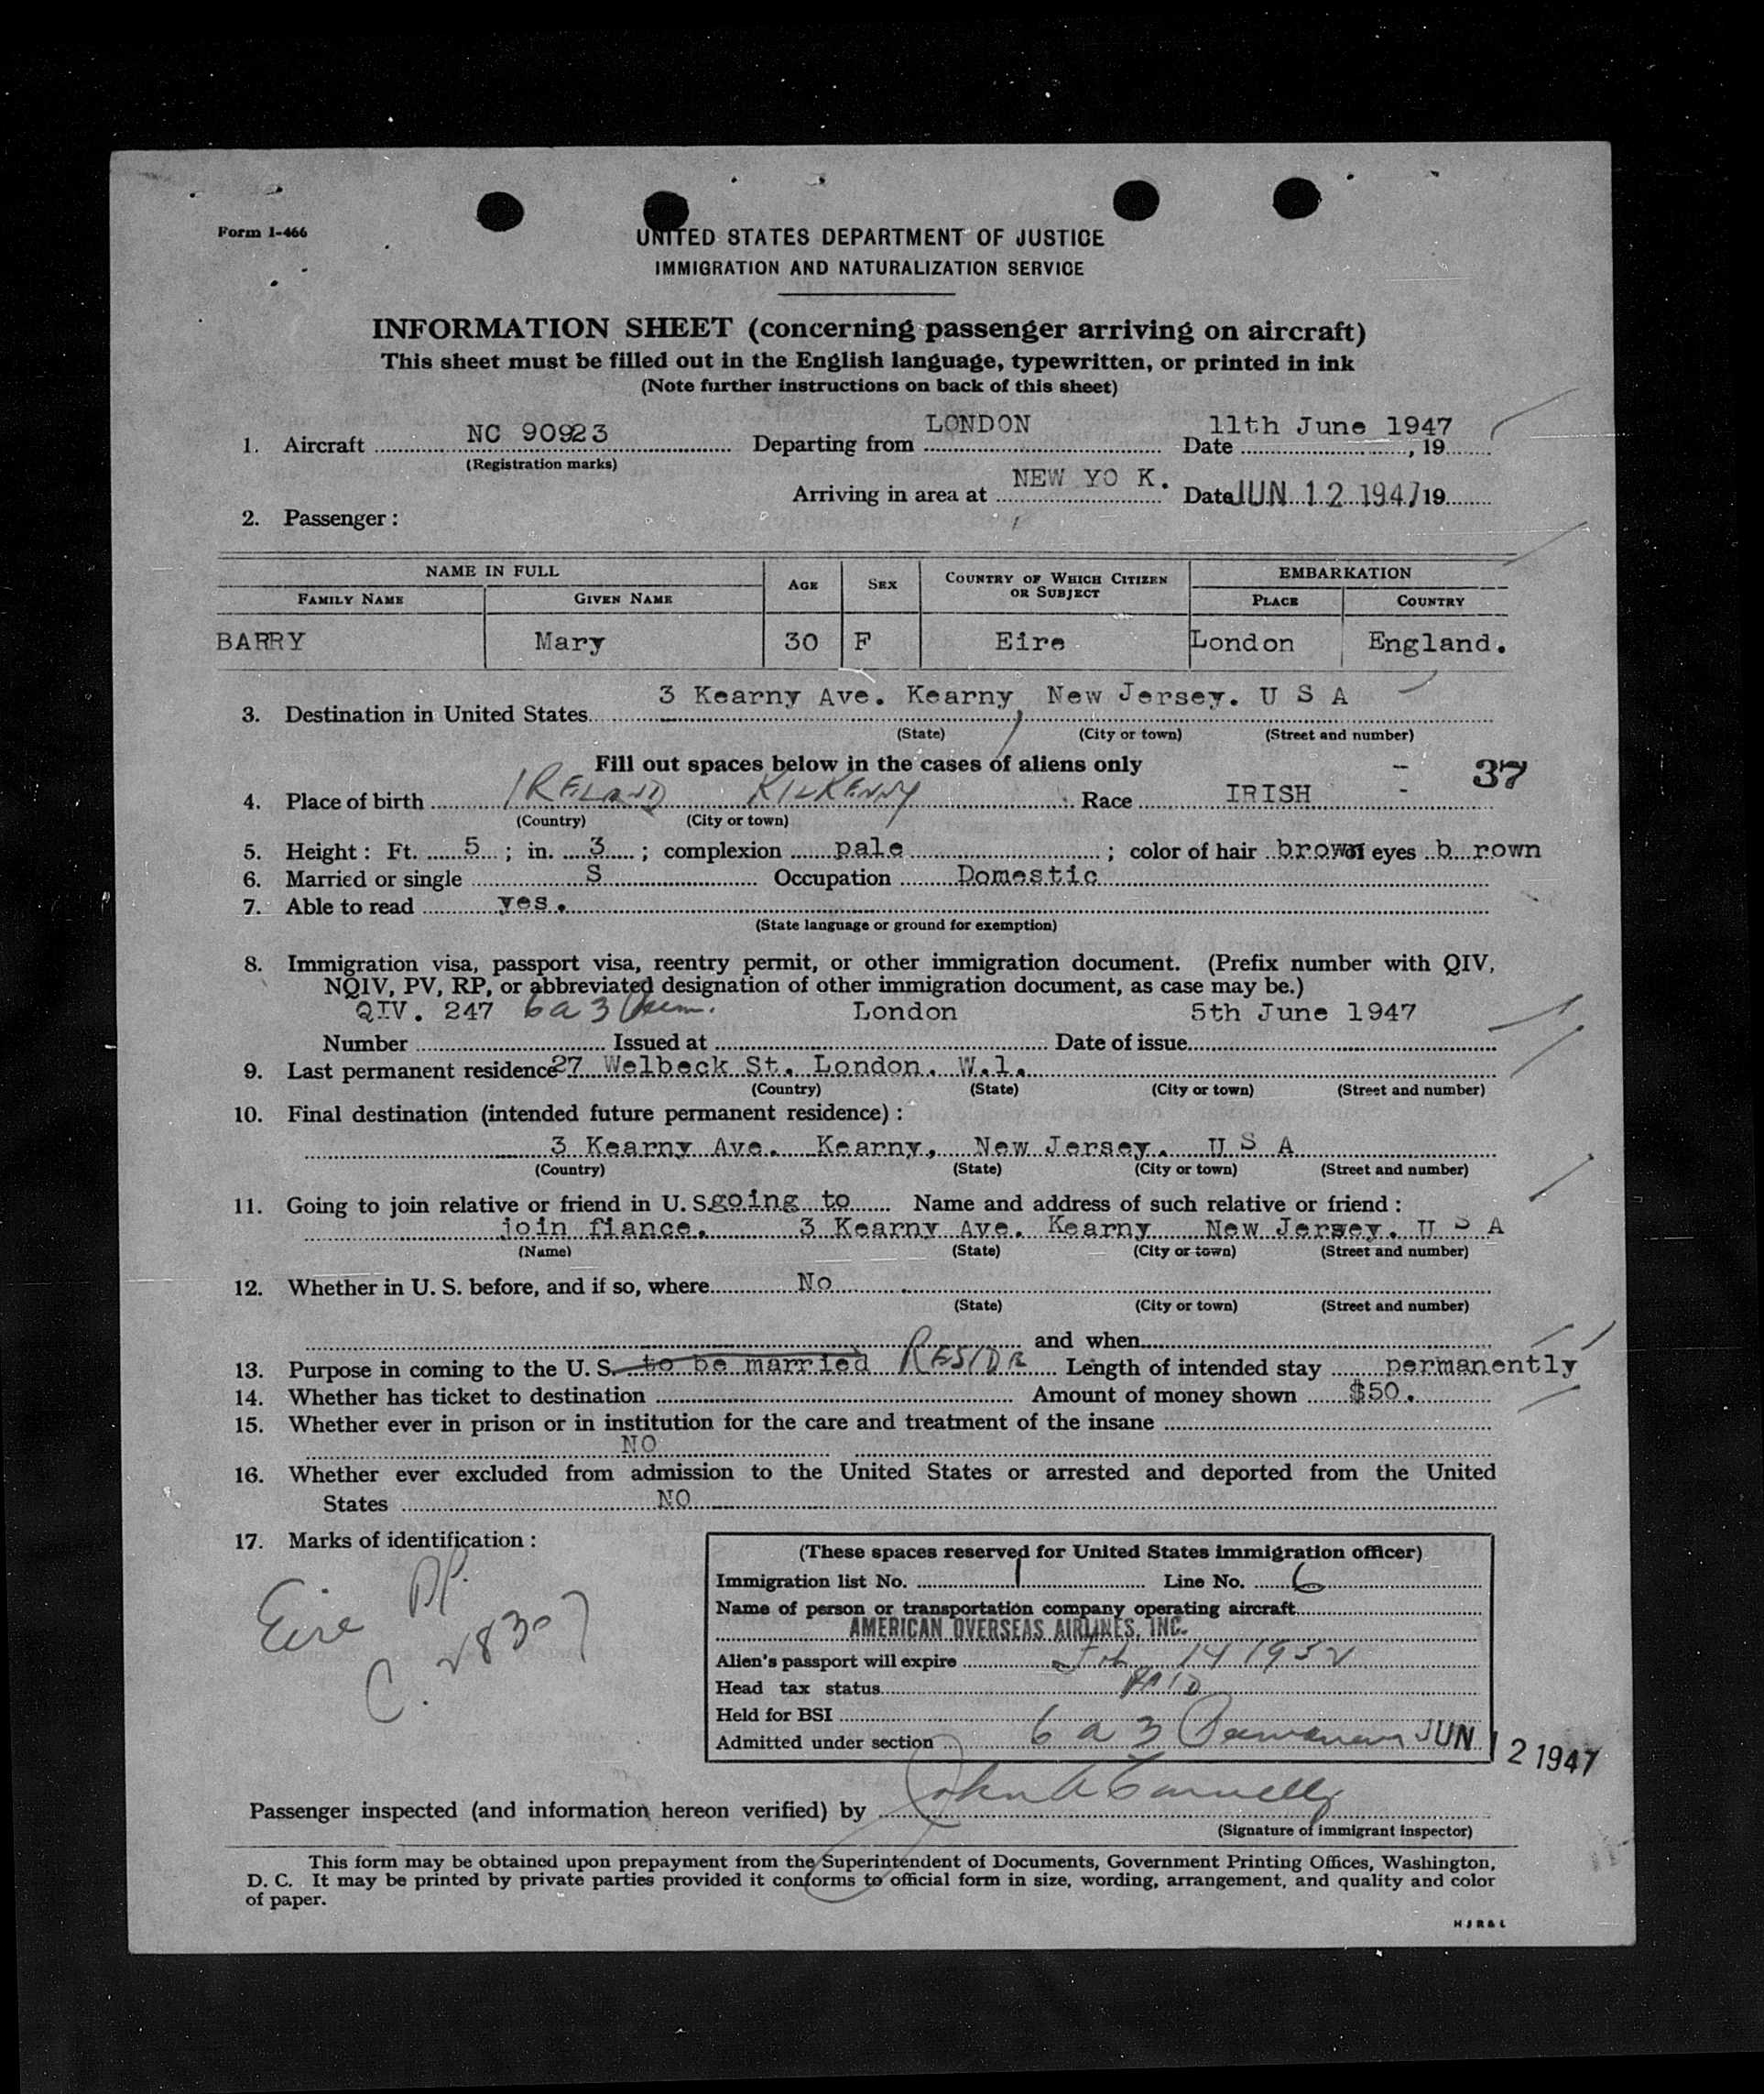 Form I-466
UNITED STATES DEPARTMENT OF JUSTICE
IMMIGRATION AND NATURALIZATION SERVICE
INFORMATION SHEET (concerning passenger arriving on aircraft)
This sheet must be filled out in the English language, typewritten, or printed in ink
(Note further instructions on back of this sheet)
1. Aircraft NC 90923 Departing from LONDON Date 11th June 1947, 19
(Registration marks)
Arriving in area at NEW YO K. Date JUN 12 1947 19
2. Passenger:
NAME IN FULL EMBARKATION
FAMILY NAME GIVEN NAME AGE SEX COUNTRY OF WHICH CITIZEN OR SUBJECT PLACE COUNTRY
BARRY Mary 30 F Eire London England.
3. Destination in United States 3 Kearny Ave. Kearny, New Jersey. U S A
(State) (City or town) (Street and number)
Fill out spaces below in the cases of aliens only
37
4. Place of birth IRELAND KILKENNY Race IRISH
(Country) (City or town)
5. Height: Ft. 5; in. 3; complexion pale; color of hair brown of eyes b rown
6. Married or single S Occupation Domestic
7. Able to read yes.
(State language or ground for exemption)
8. Immigration visa, passport visa, reentry permit, or other immigration document. (Prefix number with QIV,
NQIV, PV, RP, or abbreviated designation of other immigration document, as case may be.)
QIV. 247 6 a 3 London 5th June 1947
Number Issued at Date of issue
9. Last permanent residence 27 Welbeck St. London. W.1.
(Country) (State) (City or town) (Street and number)
10. Final destination (intended future permanent residence):
3 Kearny Ave. Kearny, New Jersey. U S A
(Country) (State) (City or town) (Street and number)
11. Going to join relative or friend in U. S. going to Name and address of such relative or friend:
join fiance. 3 Kearny Ave. Kearny New Jersey. U S A
(Name) (State) (City or town) (Street and number)
12. Whether in U. S. before, and if so, where No
(State) (City or town) (Street and number)
and when
13. Purpose in coming to the U. S. to be married RESIDE Length of intended stay permanently
14. Whether has ticket to destination Amount of money shown $50.
15. Whether ever in prison or in institution for the care and treatment of the insane
NO
16. Whether ever excluded from admission to the United States or arrested and deported from the United
States NO
17. Marks of identification:
Eire PP.
C. 28307
(These spaces reserved for United States immigration officer)
Immigration list No. 1 Line No. 6
Name of person or transportation company operating aircraft
AMERICAN OVERSEAS AIRLINES, INC.
Alien's passport will expire Feb 14 1952
Head tax status PAID
Held for BSI
Admitted under section 6 a 3 JUN 12 1947
Passenger inspected (and information hereon verified) by
(Signature of immigrant inspector)
This form may be obtained upon prepayment from the Superintendent of Documents, Government Printing Offices, Washington,
D. C. It may be printed by private parties provided it conforms to official form in size, wording, arrangement, and quality and color
of paper.
H J R & L